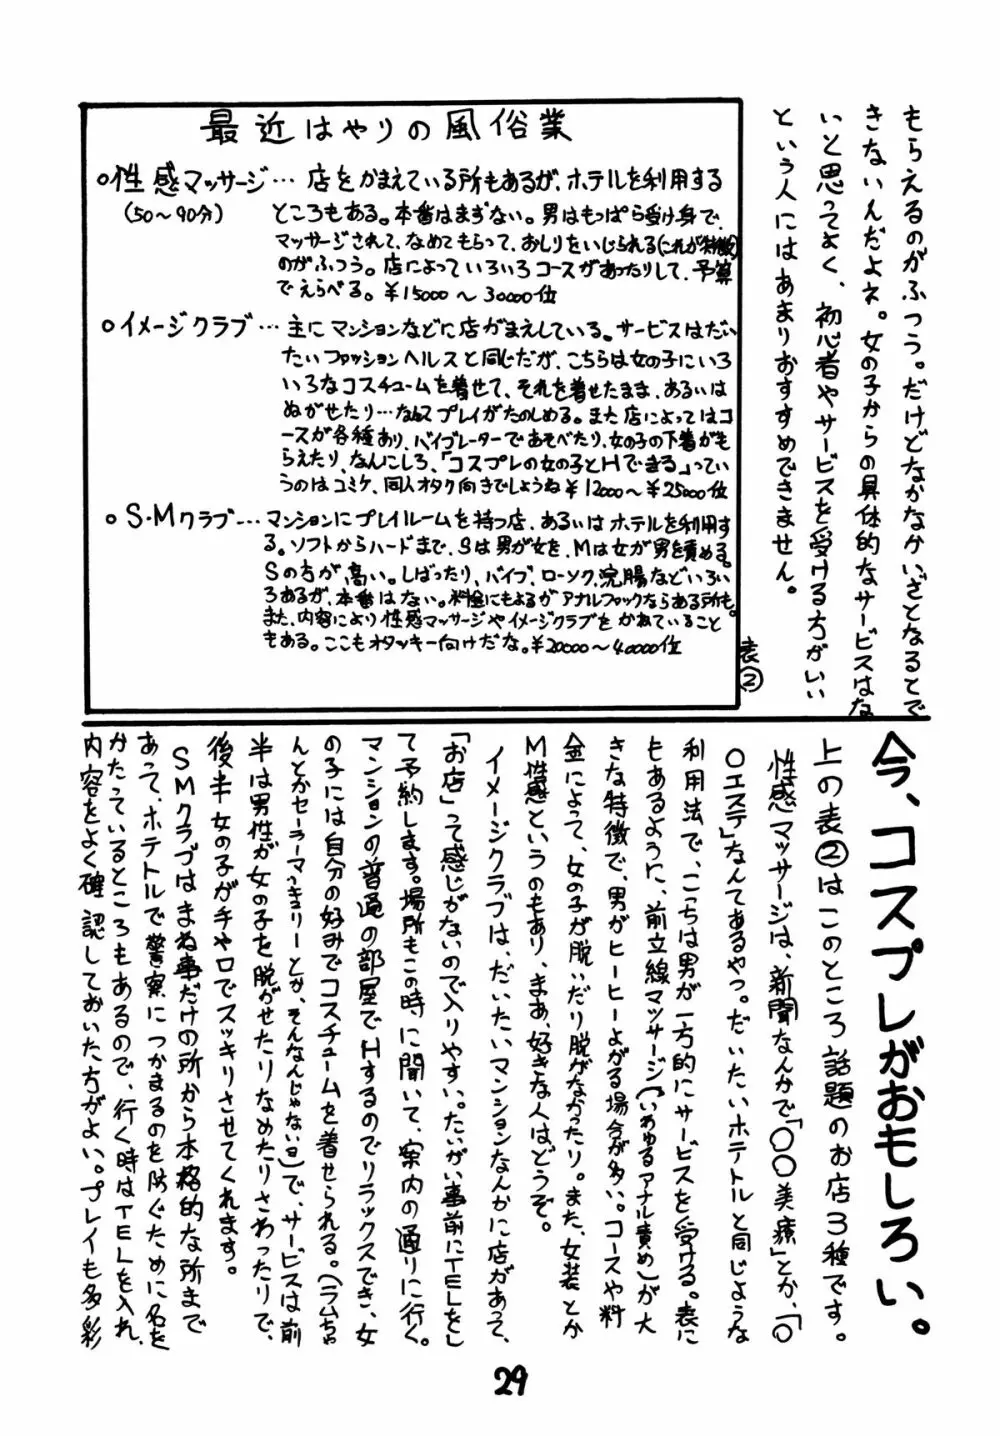 もらえるのがふつう。だけどなかなかいざとなるとで
きないんだよネ。女の子からの具体的なサービスはな
いと思ってよく、初心者やサービスを受ける方がいい
という人にはあまりおすすめできません。
表②
最近はやりの風俗業
○性感マッサージ…店をかまえている所もあるが、ホテルを利用する
(50〜90分)
ところもある。本番はまずない。男はもっぱら受け身で、
マッサージされて、なめてもらって、おしりをいじられる(これが特徴)
のがふつう。店によっていろいろコースがあったりして、予算
でえらべる。¥15000〜30000位
○イメージクラブ…主にマンションなどに店がまえしている。サービスはだい
たいファッションヘルスと同じだが、こちらは女の子にいろ
いろなコスチュームを着せて、それを着せたまま、あるいは
ぬがせたり…なんてプレイがたのしめる。また店によってはコ
ースが各種あり、バイブレーターであそべたり、女の子の下着がも
らえたり、なんにしろ、「コスプレの女の子とHできる」ってい
うのはコミケ、同人オタク向きでしょうね¥12000〜¥25000位
○S・Mクラブ…マンションにプレイルームを持つ店、あるいはホテルを利用す
る。ソフトからハードまで、Sは男が女を、Mは女が男を責める。
Sの方が高い。しばったり、バイブ、ローソク、浣腸などいろい
ろあるが、本番はない。料金にもよるがアナルファックならある所も。
また、内容により性感マッサージやイメージクラブをかねていること
もある。ここもオタッキー向けだな。¥20000〜40000位
今、コスプレがおもしろい。
上の表②はこのところ話題のお店3種です。
性感マッサージは、新聞なんかで「○○美療」とか、「○
○エステ」なんてあるやつ。だいたいホテトルと同じような
利用法で、こっちは男が一方的にサービスを受ける。表に
もあるように、前立線マッサージ(いわゆるアナル責め)が大
きな特徴で、男がヒーヒーよがる場合が多い。コースや料
金によって、女の子が脱いだり脱がなかったり。また、女装とか
M性感というのもあり、まあ、好きな人はどうぞ。
イメージクラブは、だいたいマンションなんかに店があって、
「お店」って感じがないので入りやすい。たいがい事前にTELをし
て予約します。場所もこの時に聞いて、案内の通りに行く。
マンションの普通の部屋でHするのでリラックスでき、女
の子には自分の好みでコスチュームを着せられる。(ラムちゃ
んとかセーラーマーキュリーとか、そんなんじゃない日)で、サービスは前
半は男性が女の子を脱がせたりなめたりさわったりで、
後半女の子が手や口でスッキリさせてくれます。
SMクラブはまね事だけの所から本格的な所まで
あって、ホテトルで警察につかまるのを防ぐために名を
かたっているところもあるので、行く時はTELを入れ、
内容をよく確認しておいた方がよい。プレイも多彩
29